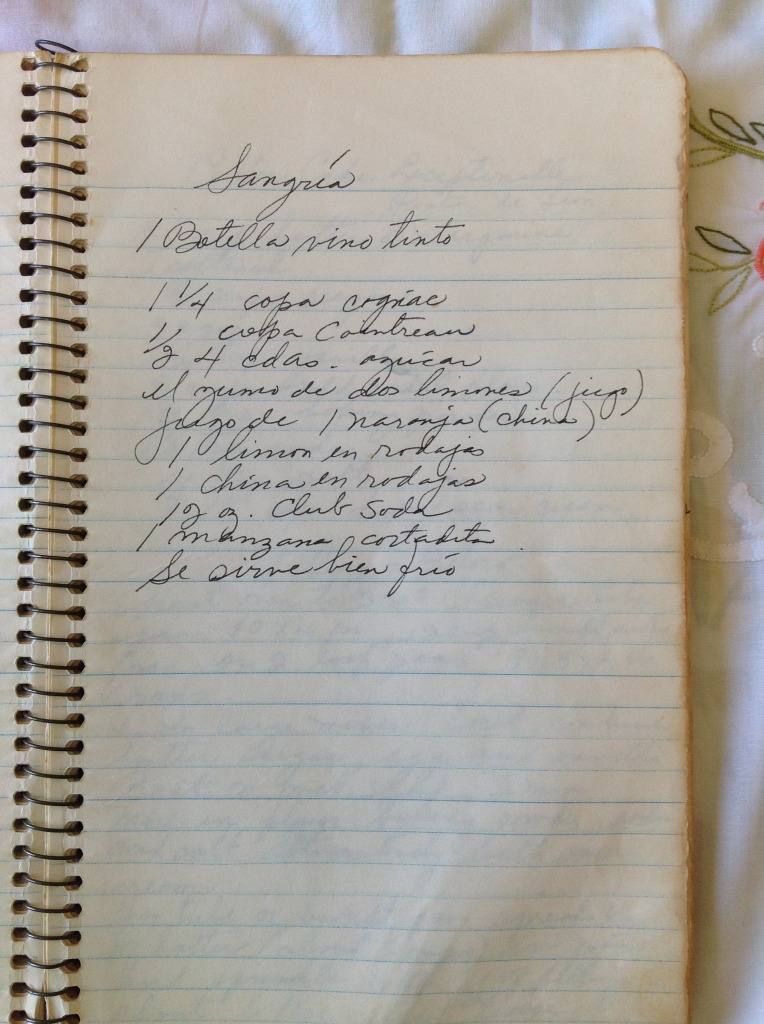 Sangría
1 Botella vino tinto
1 1/4 copa cogñac
1/2 copa Cointreau
4 cdas. azúcar
el zumo de dos limones (jugo)
jugo de 1 naranja (china)
1 limon en rodajas
1 china en rodajas
12 oz. Club Soda
1 manzana cortadita
Se sirve bien frío